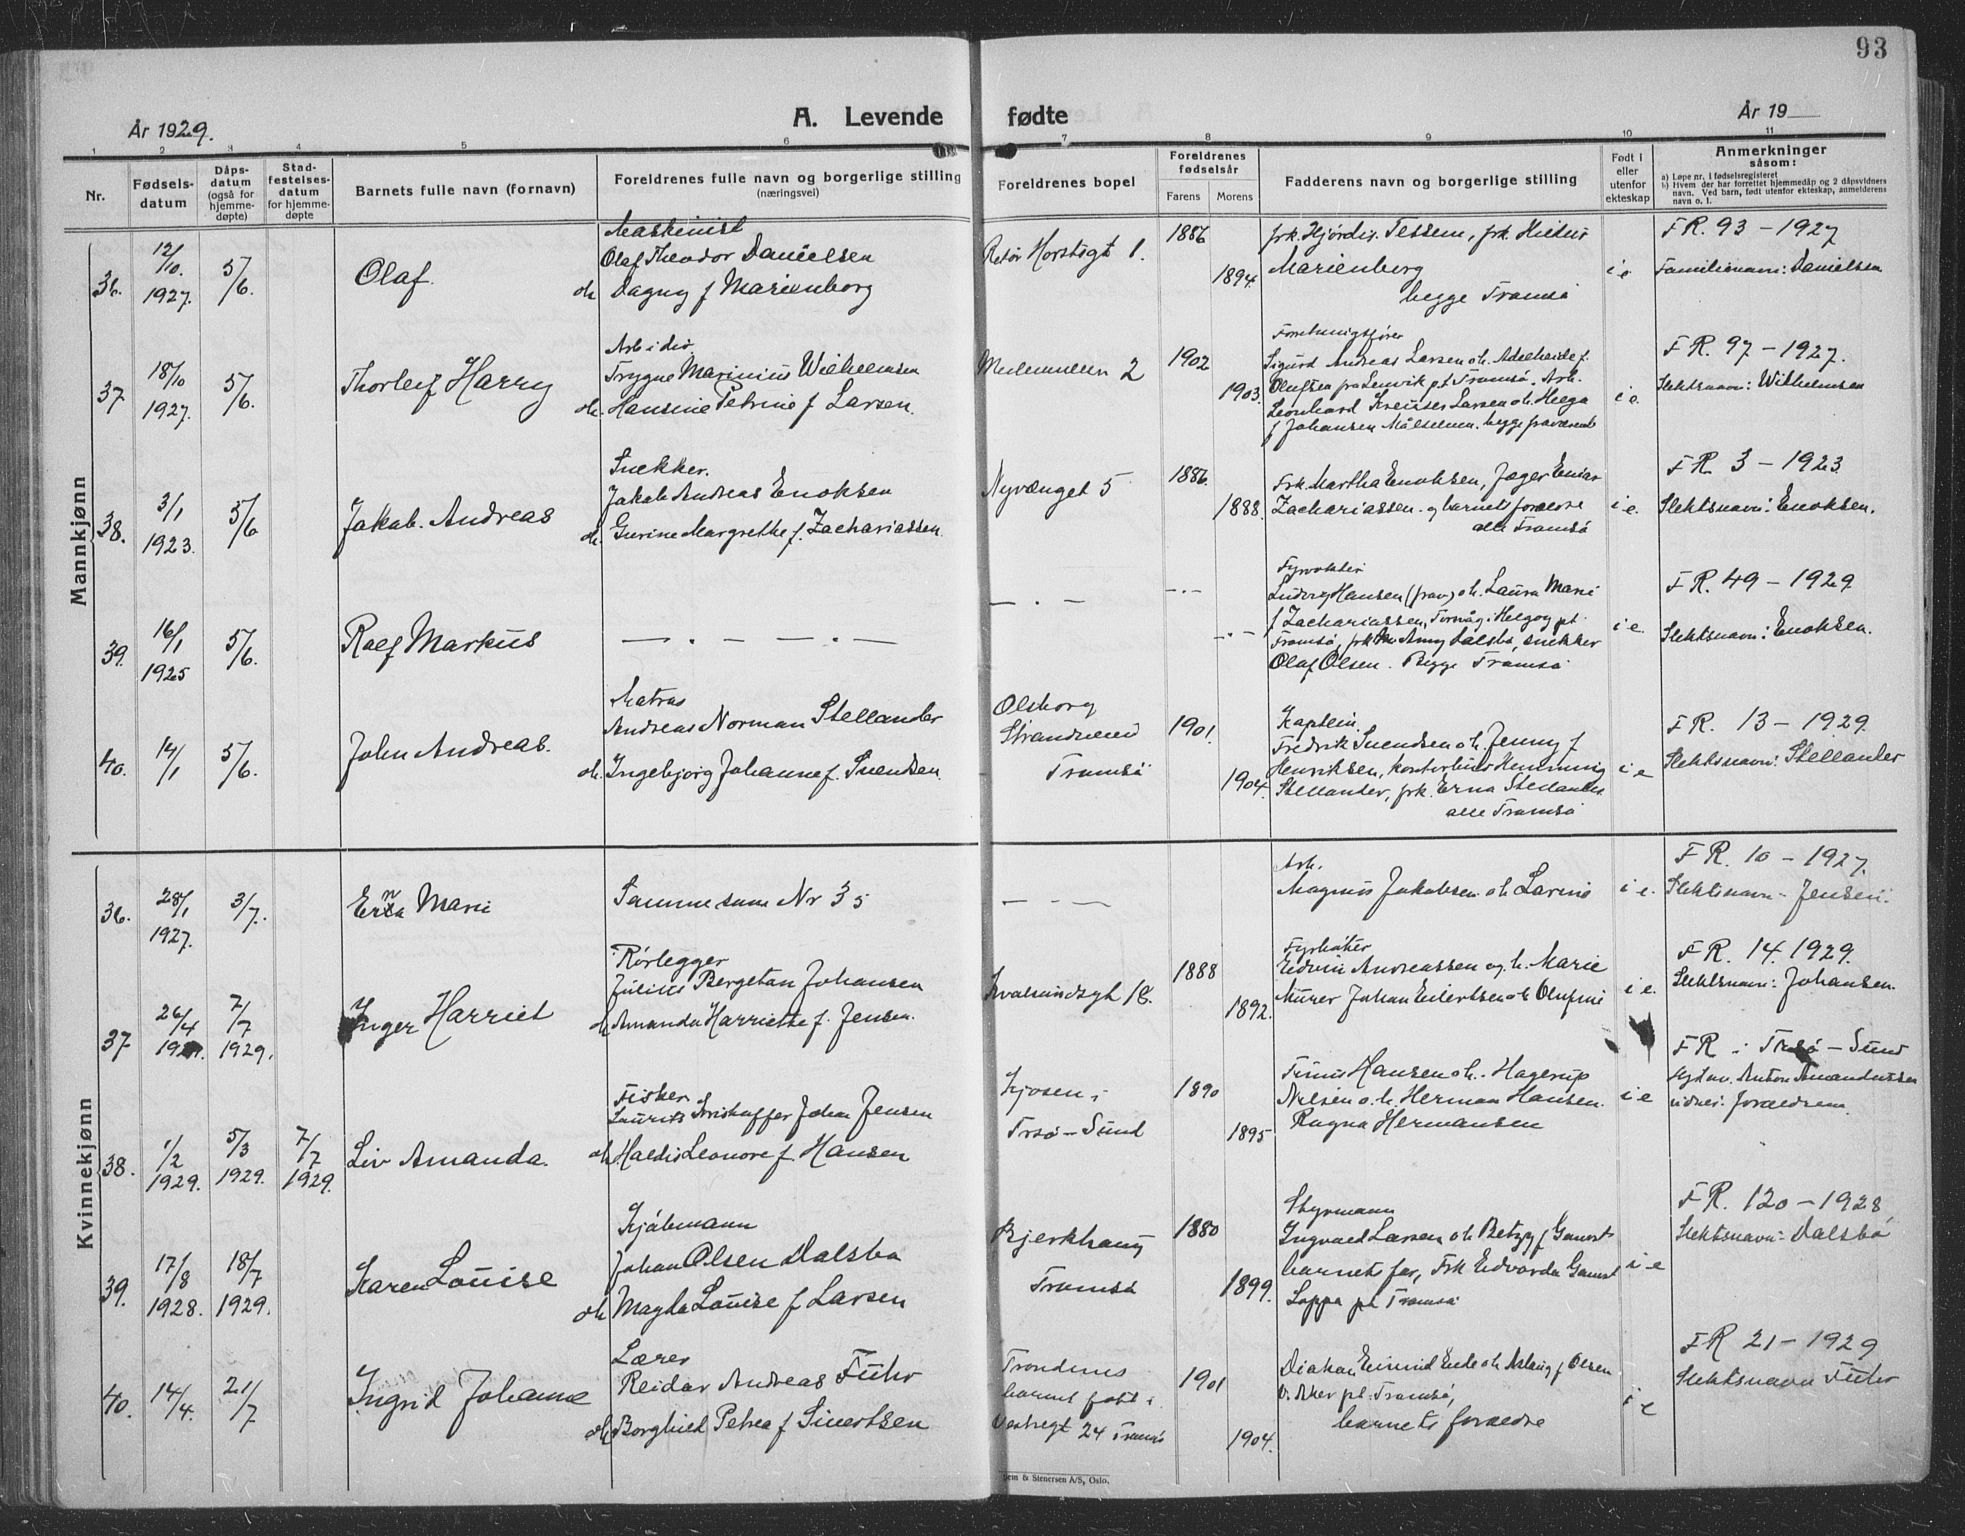 93
A. Levende fødte
År 1929.
År 19
1 2 3 4 5 6 7 8 9 10 11
Nr.
Fødsels-
datum
Dåps-
datum
(også for
hjemme-
døpte)
Stad-
festelses-
datum
for hjemme-
døpte
Barnets fulle navn (fornavn)
Foreldrenes fulle navn og borgerlige stilling
(næringsvei)
Foreldrenes bopel
Foreldrenes
fødselsår
Farens Morens
Fadderens navn og borgerlige stilling
Født i
eller
utenfor
ekteskap
Anmerkninger
såsom:
a) Løpe nr. i fødselsregisteret
b) Hvem der har forrettet hjemmedåp og 2 dåpsvidners
navn. Ved barn, født utenfor ekteskap, anmelderens
navn o. l.
Mannkjønn
36.
12/10
1927.
5/6.
Olaf
Maskinist
Olaf Theodor Danielsen
oh Dagny f Marienborg
1.
1886
1894
frk. Hjördis Tessem, frk.
Marienborg
begge Tromsö
i e
F R. 93 - 1927
Familienavn: Danielsen
37.
18/10
1927.
5/6.
Thorleif Harry
Arbeider
Trygve Marinius Wilhelmsen
oh. Hansine Petrine f Larsen.
2
1902
1903.
Forretningsfører
Sigurd Andreas Larsen oh. f.
Olufsen fra Lenvik pt Tromsö. Arb.
Leonhard Larsen oh. Helga
f Johansen Målselven. begge fraværende
i e.
F R. 97 - 1927.
Slektsnavn: Wilhelmsen
38.
3/1
1923.
5/6
Jakob Andreas
Snekker.
Jakob Andreas Enoksen
oh. Gurine Margrethe f. Zachariassen
Nyvænget 5
1886.
1888.
Frk. Martha Enoksen, Jæger Einar
Zachariassen og barnets forældre
alle Tromsö
i e.
F R 3 - 1923
Slektsnavn: Enoksen.
39.
16/1
1925
5/6.
Rolf Markus
— . — — . —
— . —
- . -
- . -
Fyrvokter
Ludvig Hansen (frav) oh. Laura Marie
f Zachariassen, Torsvåg i Helgøy pt.
Tromsö, frk Amy Dalsbö, snekker
Olaf Olsen. Begge Tromsö
i e.
F R. 49 - 1929
Slektsnavn: Enoksen.
40.
14/1
5/6.
John Andreas.
Matros
Andreas Norman Stellander
oh. Ingebjørg Johanne f. Svendsen
Olsborg
Strandveien
Tromsö
1901.
1904.
Kaptein
Fredrik Svendsen oh. Jenny f
Henriksen, Hemming
Stellander, frk. Erna Stellander
alle Tromsö
i e
F R. 13 - 1929.
Slektsnavn: Stellander
Kvinnekjønn
36.
28/1
1927.
3/7.
Erna Marie
Samme som Nr 35
— . —
Arb.
Magnus Jakobsen oh Lavine
i e.
F R. 10 - 1927.
Slektsnavn - Jensen.
37
26/4
7/7
1929.
Inger Harriet
Rörlegger
Julius Bergeton Johansen
oh Amanda Harriette f. Jensen.
Kvalsundsgt 18.
1888
1892.
Fyrbøter
Edvin Andreassen og h. Marie
Murer Johan Eilertsen oh Olufine
i e.
F R. 14. 1929.
Slektsnavn: Johansen.
38.
1/2
1929.
5/3
1929.
7/7
1929.
Liv Amanda.
Fisker
Laurits Kristoffer Johan Jensen
oh Haldis Leonore f. Hansen
Kjosen i
Trsö - Sund
1890
1895
Hansen oh. Hagerup
Nilsen o. h. Herman Hansen.
Ragna Hermansen
i e
F R i Trsö - Sund
Hjdöv. Anton Amandussen
vidner: forældrene.
39.
17/8
1928.
18/7
1929.
Karen Louise
Kjöbmann
Johan Olsen Dalsbö
oh Magda Louise f Larsen
Bjerkhaug
Tromsö
1880
1899.
Styrmann
Ingvald Larsen oh Betzy f Gamst
barnets far, Frk Edvarda Gamst
Loppa pt Tromsö
i e
F R. 120 - 1928.
Slektsnavn: Dalsbö
40.
14/4.
21/7
Ingrid Johanne
Lærer
Reidar Andreas Führ
oh Borghild Petrea f Sivertsen
Trondenes
barnet født i
Vestregt 24 Tromsö
1901
1904.
Diakon Eivind Ende oh Aslaug f Olsen
V. Aker pt. Tromsö,
barnets forældre
i e
F R 21 - 1929
Slektsnavn Führ
& Stenersen A/S, Oslo.